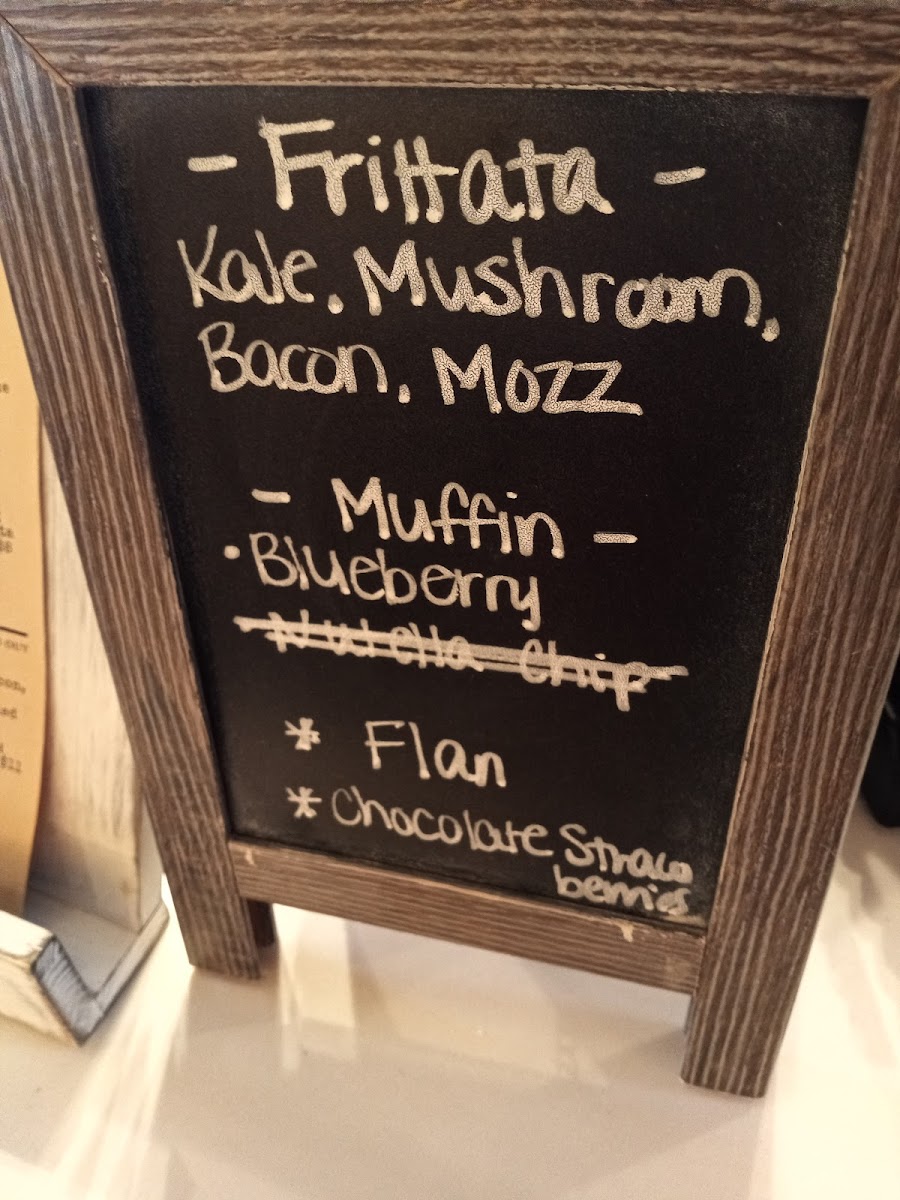 - Frittata -
Kale, Mushroom,
Bacon, Mozz
- Muffin -
• Blueberry
• Nutella Chip
* Flan
* Chocolate Straw
berries